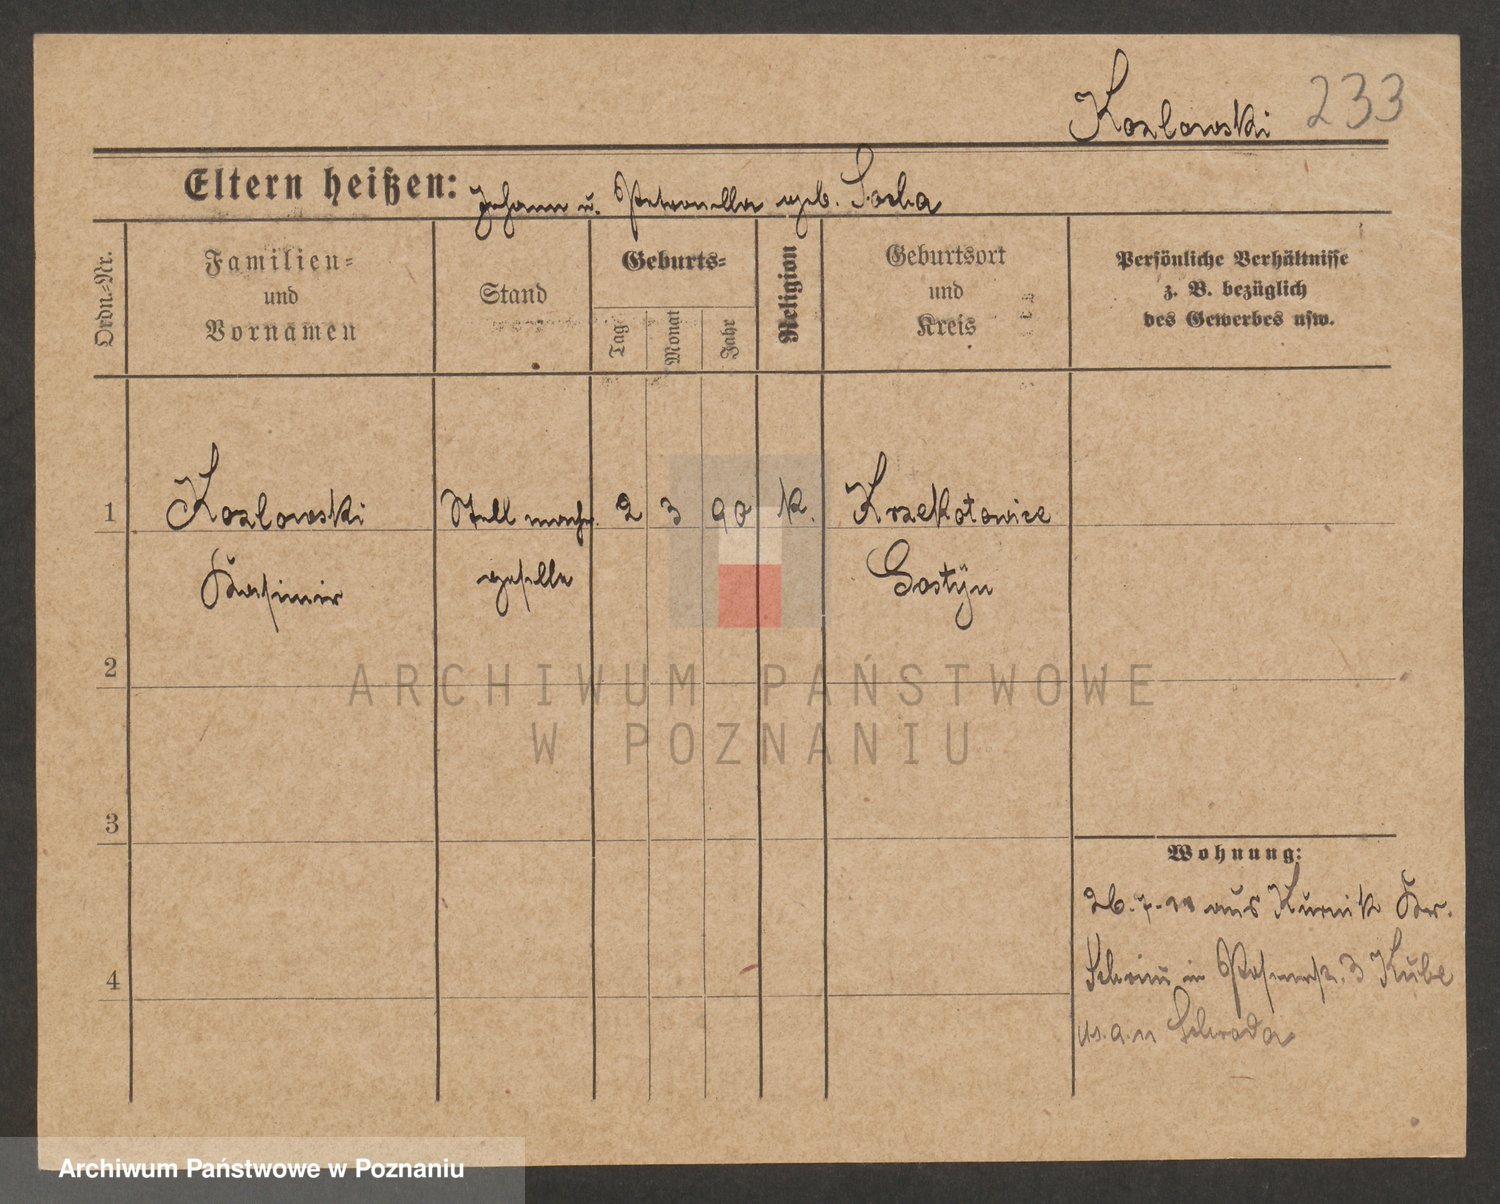 Kozlowski 233
Eltern heißen: Johann u. Petronella geb. Socha
Ordn.-Nr.
Familien-
und
Vornamen
Stand
Geburts-
Tag
Monat
Jahr
Religion
Geburtsort
und
Kreis
Persönliche Verhältnisse
z. B. bezüglich
des Gewerbes usw.
1 Kozlowski Stellmach. 2 3 90 K. Krzekotowice
Kasimir geselle Gostÿn
2
ARCHIWUM PAŃSTWOWE
W POZNANIU
3
Wohnung:
26.7. aus Kurnik Kr.
4
Schrim in Posenerstr. 3 Kube
Schroda
Archiwum Państwowe w Poznaniu